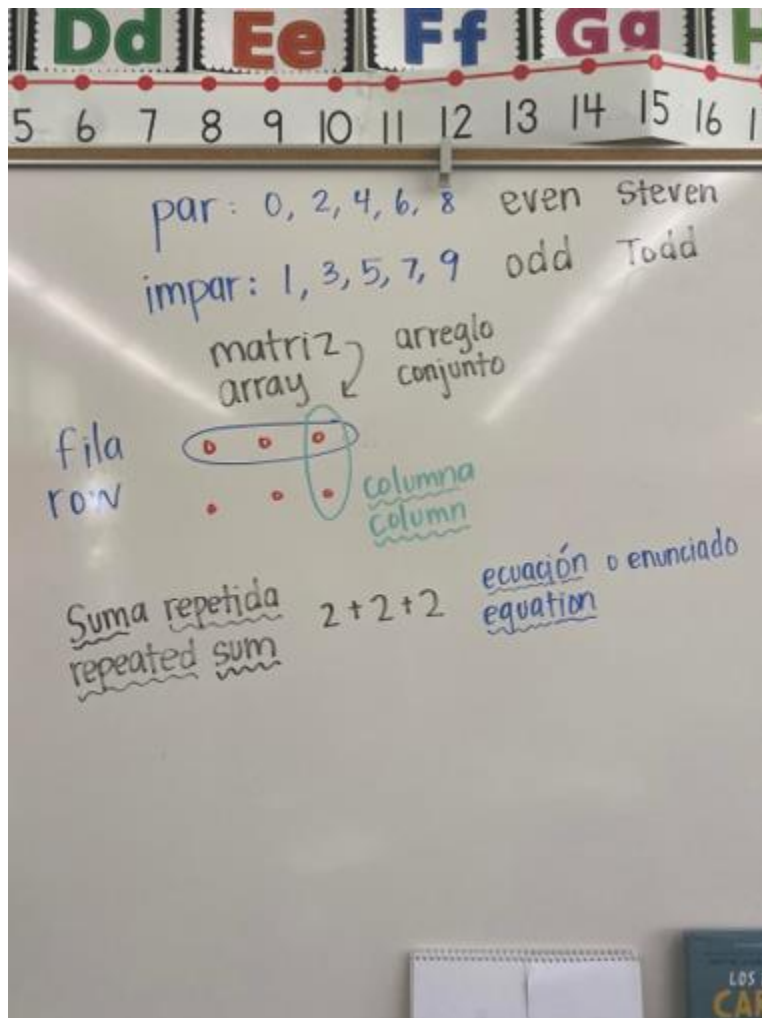 Dd Ee Ff Gg H
5 6 7 8 9 10 11 12 13 14 15 16 1
par: 0, 2, 4, 6, 8 even Steven
impar: 1, 3, 5, 7, 9 odd Todd
matriz arreglo
array conjunto
fila
row
columna
column
Suma repetida 2+2+2 ecuación o enunciado
repeated sum equation
LOS
CAR